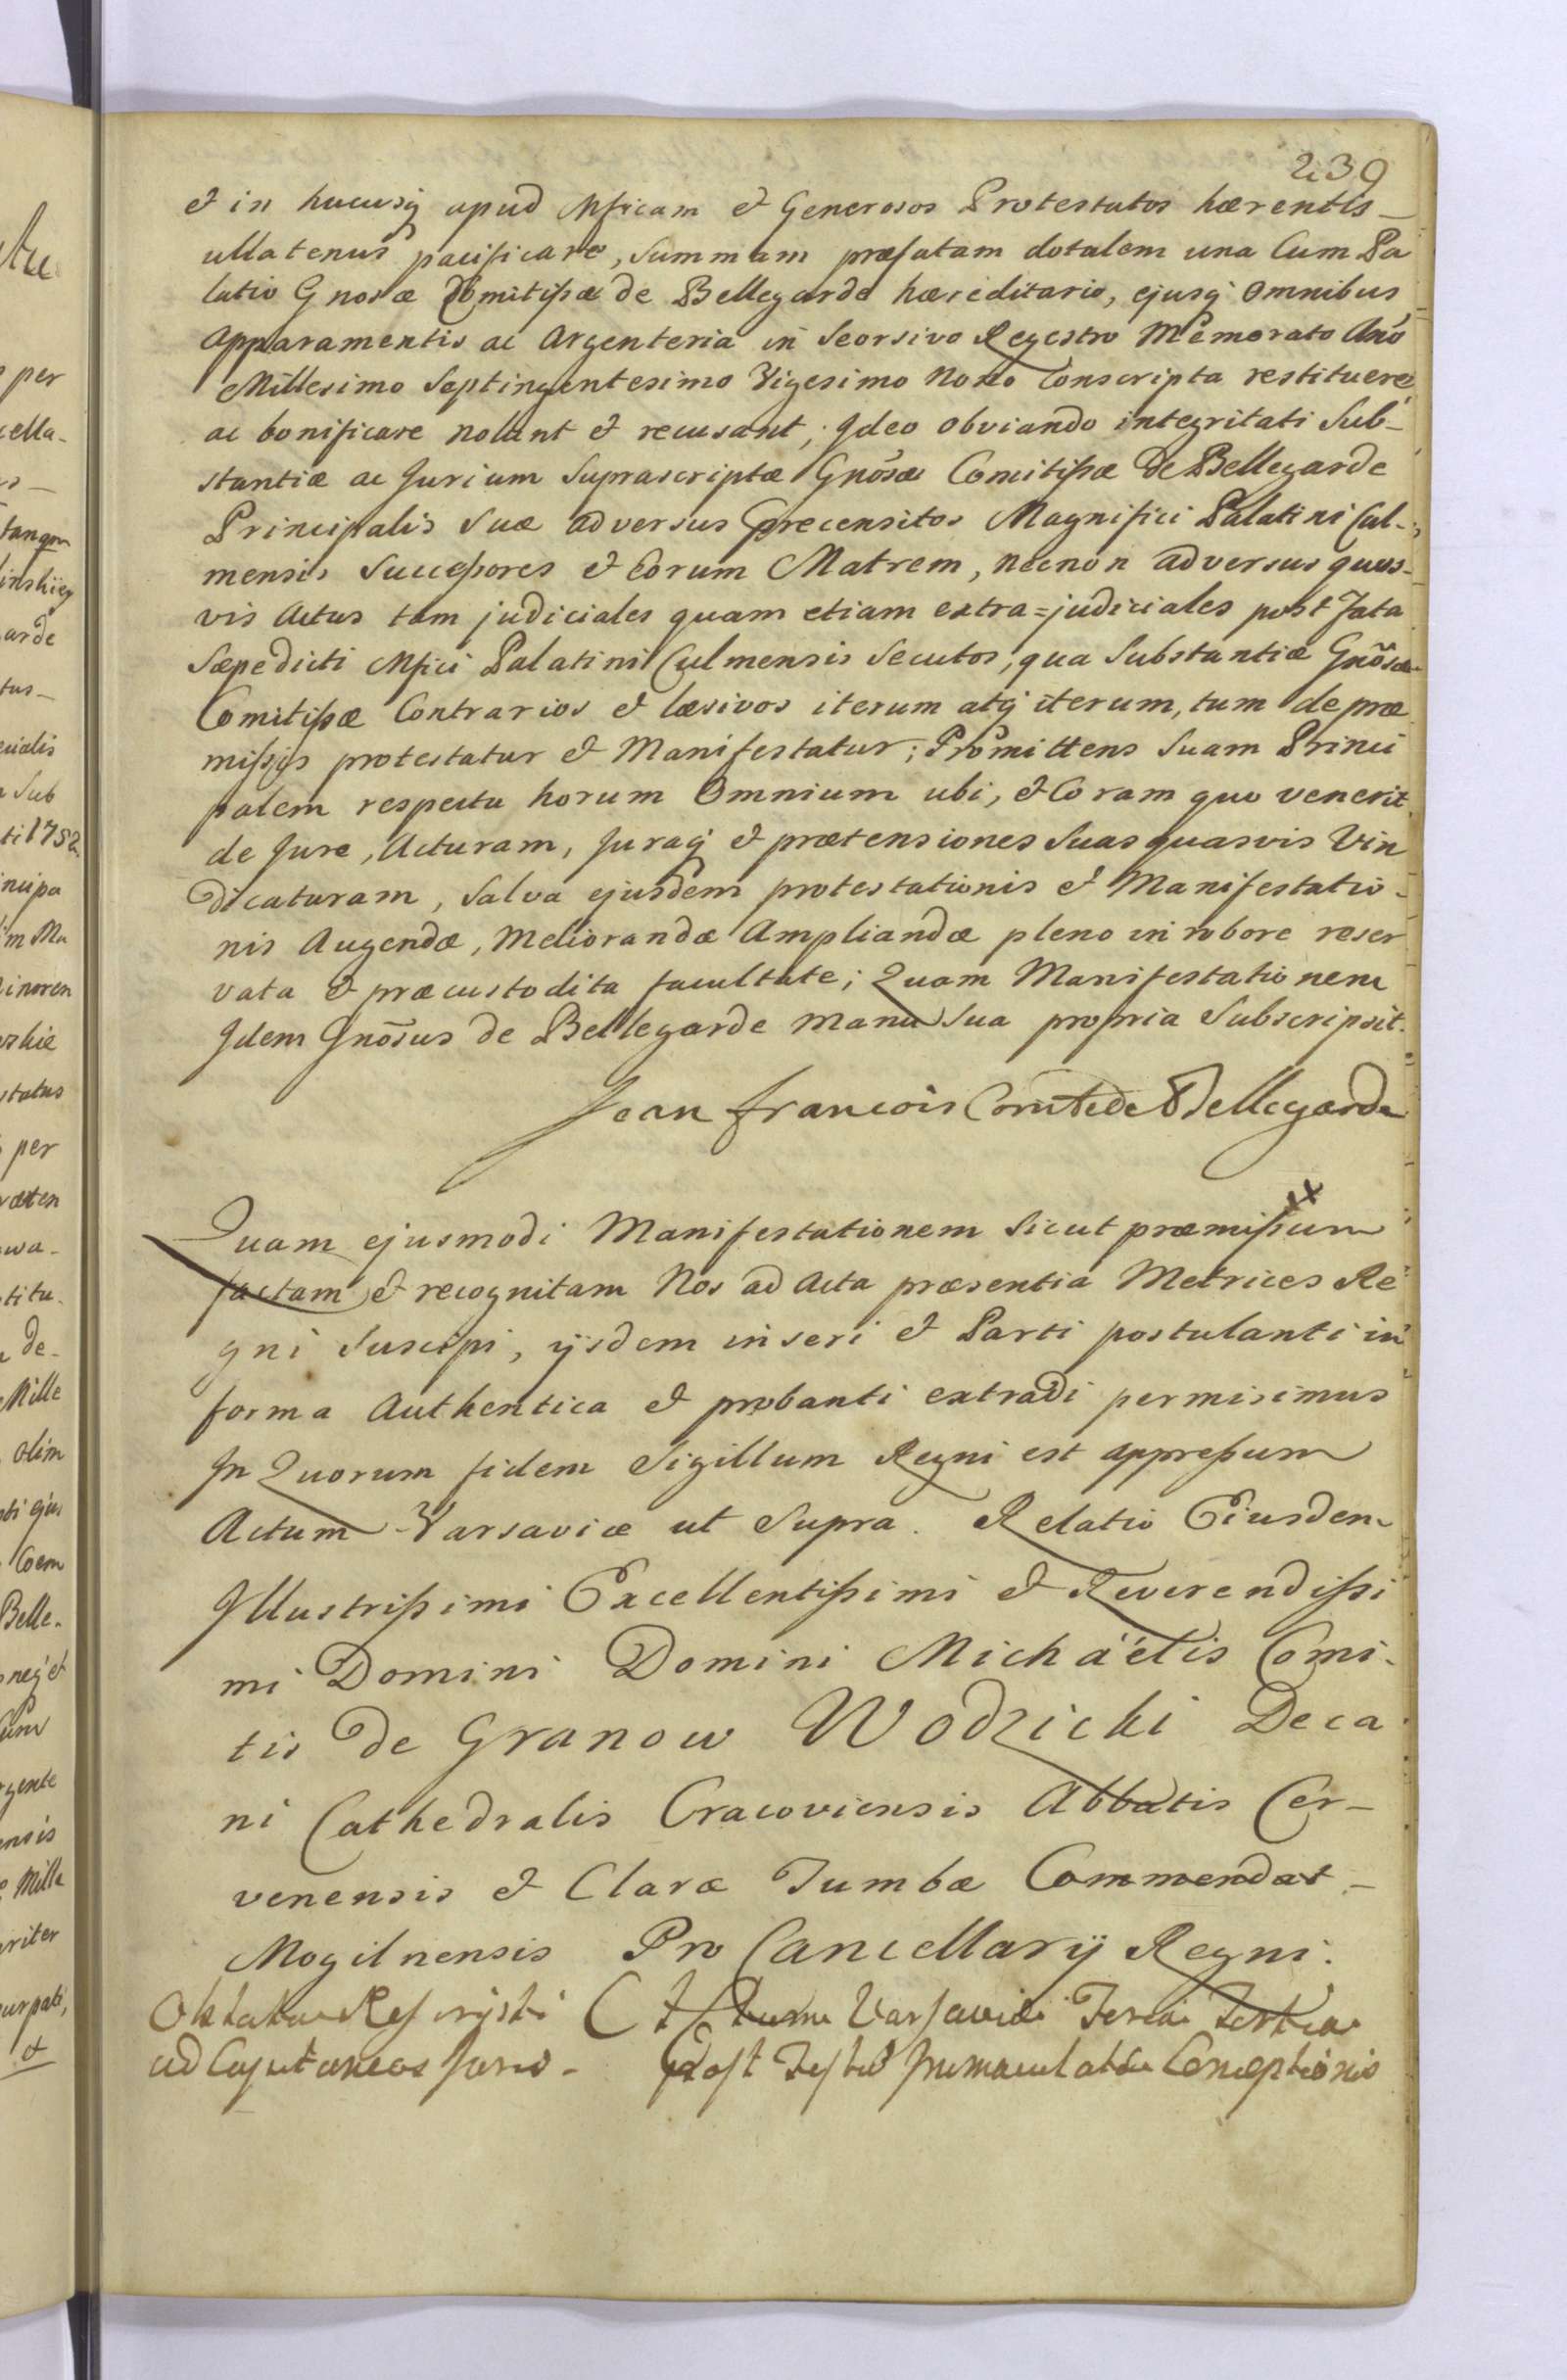 239
et in hucusq apud Mficam et Generosos Protestatos hærentes
ullatenus pacificare, Summam præfatam dotalem una Cum Pa
latio Gnosæ Comitissæ de Bellegarde hæreditario, ejusq Omnibus
Apparamentis ac Argenteria in Seorsivo Regestro Memorato Ano
Millesimo Septingentesimo Vigesimo Nono Conscripta restituere
ac bonificare nolunt et recusant, Ideo Obviando integritati Sub-
stantiæ ac Jurium Suprascriptæ Gnosæ Comitissæ De Bellegarde
Principalis Suæ adversus precensitos Magnifici Palatini Cul-
mensis Successores et Eorum Matrem, necnon adversus quos-
vis Actus tam judiciales quam etiam extra=judiciales post Fata
Sæpedicti Mfici Palatini Culmensis Secutos, qua Substantiæ Gnosæ
Comitissæ Contrarios et læsivos iterum atq iterum, tum de præ
missis protestatur et Manifestatur; Promittens Suam Princi
palem respectu horum Omnium ubi, et Coram quo venerit
de Jure, Acturam, Juraq et prætensiones Suas quasvis Vin
dicaturam, Salva ejusdem protestationis et Manifestatio-
nis Augendæ, Meliorandæ Ampliandæ pleno in robore reser
vata et præcustodita facultate; Quam Manifestationem
Idem Gnosus de Bellegarde Manu Sua propria Subscripsit.
Jean francois Comte de Bellegarde
Quam ejusmodi Manifestationem Sicut præmissum
factam et recognitam Nos ad Acta præsentia Metrices Re
gni Suscipi, ijsdem inseri et Parti postulanti in
forma Authentica et probanti extradi permisimus
In Quorum fidem Sigillum Regni est appressum
Actum Varsaviæ ut Supra. Relatio Eiusdem
Illustrissimi Excellentissimi et Reverendissi
mi Domini Domini Michaëlis Comi-
tis De Granow Wodzicki Deca
ni Cathedralis Cracoviensis Abbatis Cer-
venensis et Claræ Tumbæ Commendat-
Mogilnensis Pro Cancellarij Regni.
Oblata Rescripti Actum Varsaviæ Feria Tertia
ad Capitaneos Post Festum Immaculatæ Conceptionis